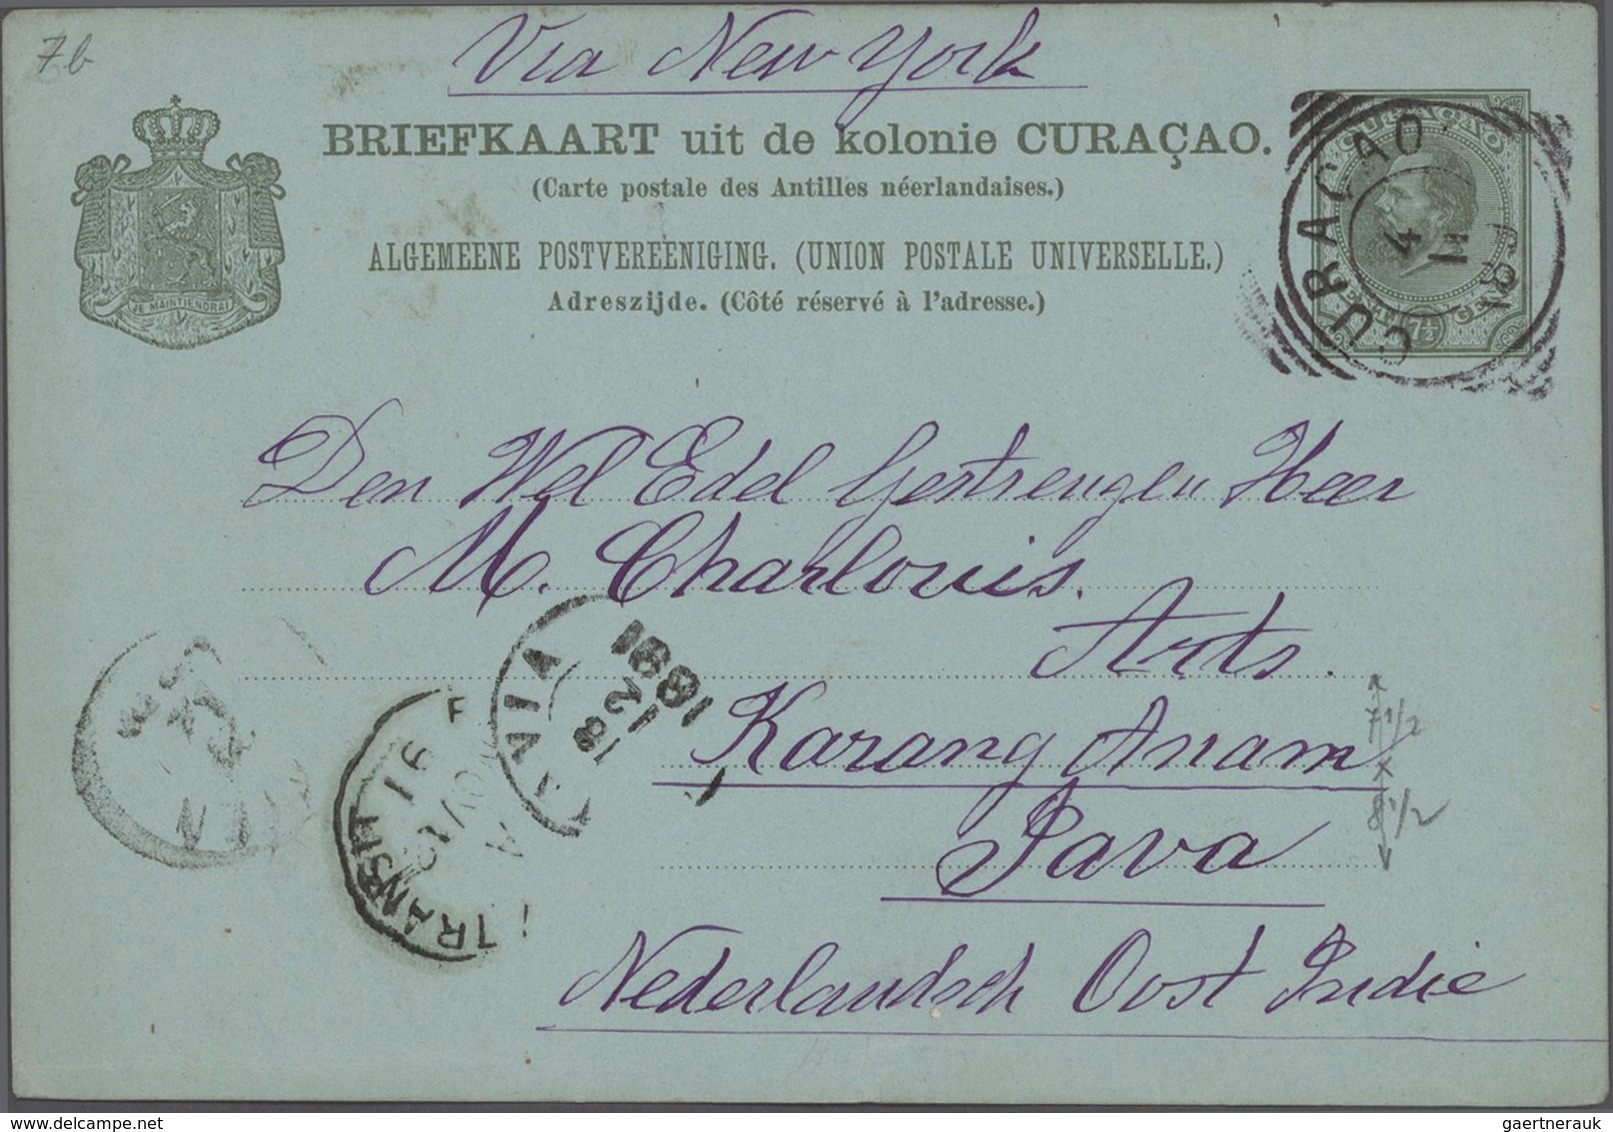 7b
Via New York
BRIEFKAART uit de kolonie CURAÇAO.
(Carte postale des Antilles néerlandaises.)
ALGEMEENE POSTVEREENIGING. (UNION POSTALE UNIVERSELLE.)
Adreszijde. (Côté réservé à l'adresse.)
JE MAINTIENDRAI
CURAÇAO
7½
CURAÇAO
4
11
1891
Den Wel Edel Gestrengen Heer
M. Charlouis.
Arts.
Karang Anam
Java
Nederlandsch Oost Indie
7 1/2
x
8 1/2
TRANSIT
91
1891
gaertnerauk